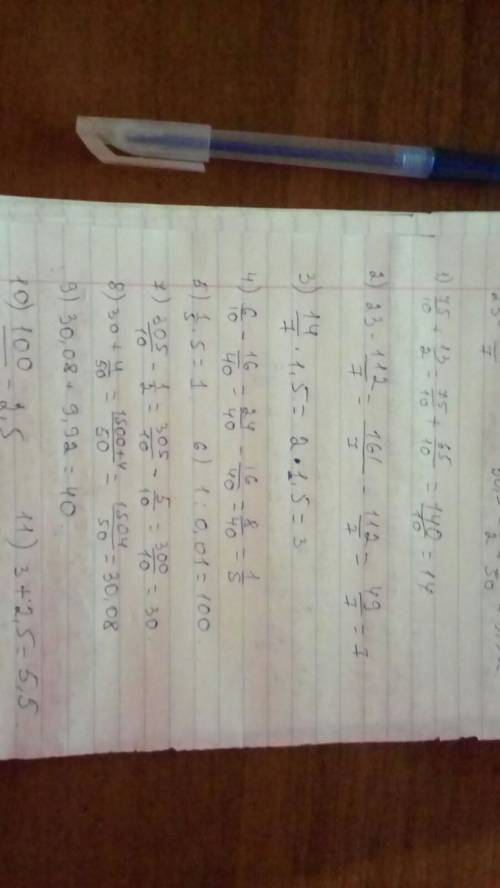 1) 75/10 + 13/2 = 75/10 + 65/10 = 140/10 = 14
2) 23 - 112/7 = 161/7 - 112/7 = 49/7 = 7
3) 14/7 · 1,5 = 2 · 1,5 = 3
4) 6/10 - 16/40 = 24/40 - 16/40 = 8/40 = 1/5
5) 1/5 · 5 = 1 6) 1 : 0,01 = 100
7) 305/10 - 1/2 = 305/10 - 5/10 = 300/10 = 30
8) 30 + 4/50 = 1500+4/50 = 1504/50 = 30,08
9) 30,08 + 9,92 = 40
10) 100/ = 2,5 11) 3 + 2,5 = 5,5